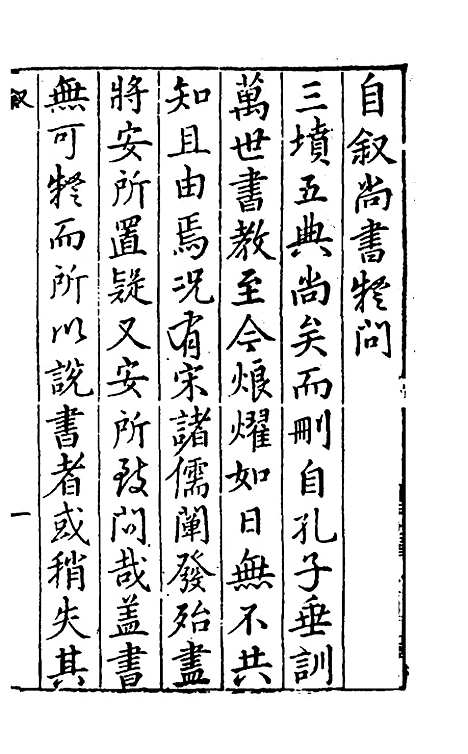 自叙尚書疑問
三墳五典尚矣而刪自孔子垂訓
萬世書教至今烺燿如日無不共
知且由焉况有宋諸儒闡發殆盡
將安所置疑又安所致问哉盖書
無可疑而所以說書者或稍失其
叙
一